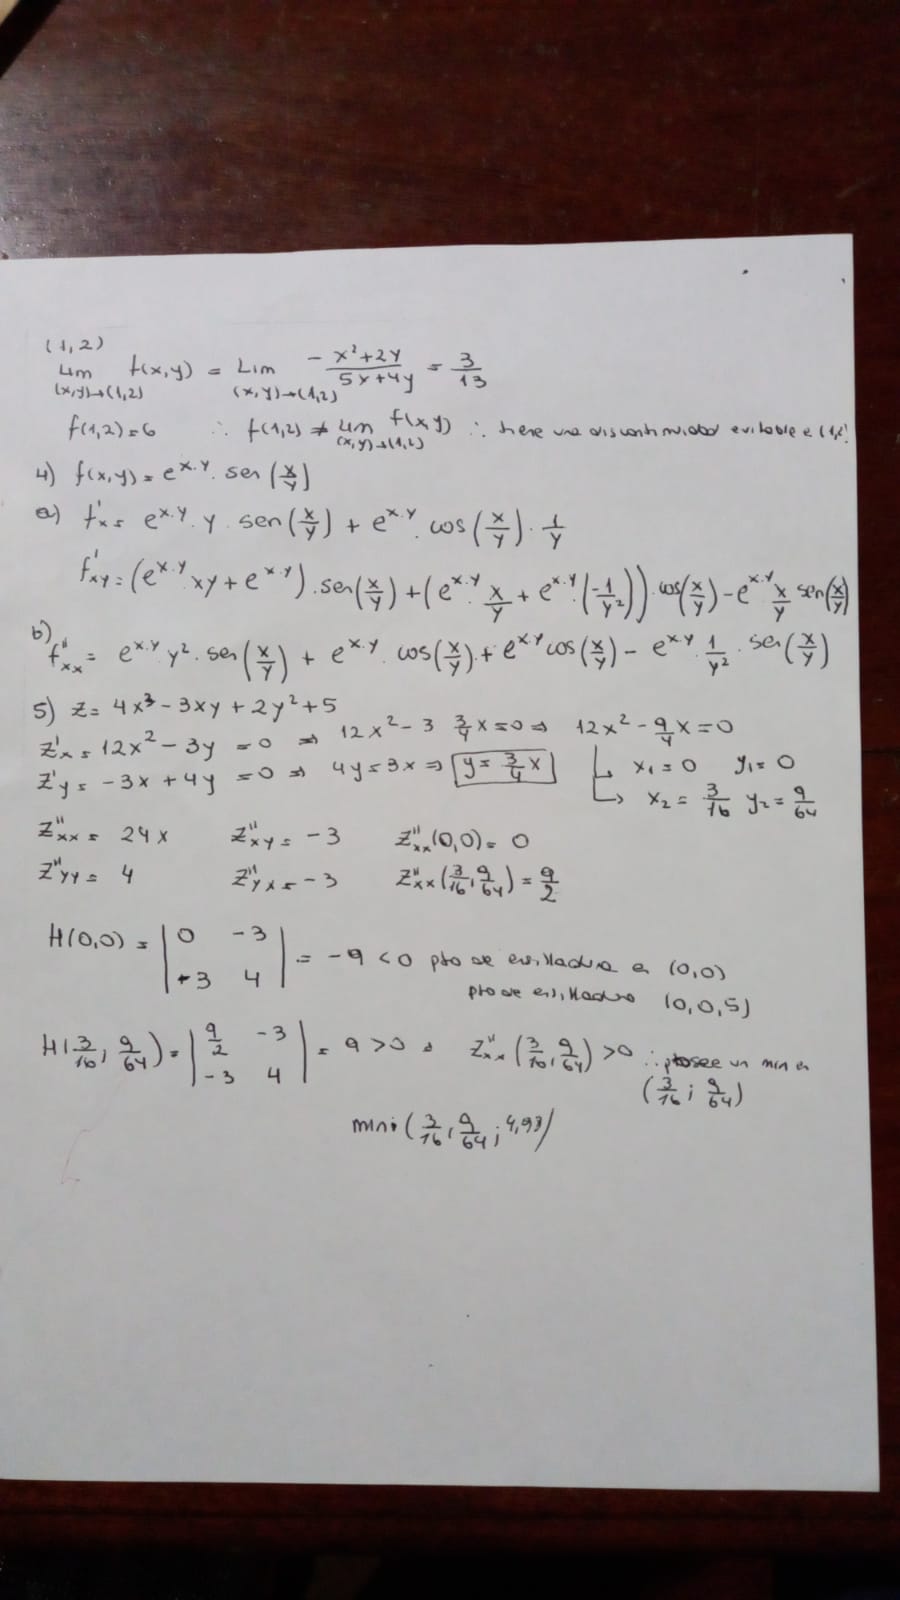 (1,2)
Lim (x,y)→(1,2) f(x,y) = Lim (x,y)→(1,2) - x²+2y / 5x+4y = 3/13
f(1,2)=6 ∴ f(1,2) ≠ Lim (x,y)→(1,2) f(x,y) ∴ tiene una discontinuidad evitable e (1,2)
4) f(x,y) = e^x.y . sen(x/y)
a) f'x = e^x.y . y . sen(x/y) + e^x.y . cos(x/y) . 1/y
f'xy = (e^x.y xy + e^x.y) . sen(x/y) + (e^x.y x/y + e^x.y (-1/y²)) . cos(x/y) - e^x.y x/y sen(x/y)
b) f''xx = e^x.y y² . sen(x/y) + e^x.y . cos(x/y) + e^x.y cos(x/y) - e^x.y . 1/y² . sen(x/y)
5) z = 4x³ - 3xy + 2y² + 5
z'x = 12x² - 3y = 0 ⇒ 12x² - 3 3/4 x = 0 ⇒ 12x² - 9/4 x = 0
z'y = -3x + 4y = 0 ⇒ 4y = 3x ⇒ y = 3/4 x
↳ x₁ = 0 y₁ = 0
↳ x₂ = 3/16 y₂ = 9/64
z''xx = 24x z''xy = -3 z''xx(0,0) = 0
z''yy = 4 z''yx = -3 z''xx(3/16, 9/64) = 9/2
H(0,0) = | 0 -3 | -3 4 | = -9 < 0 pto de ensilladura en (0,0)
pto de ensilladura (0,0,5)
H(3/16, 9/64) = | 9/2 -3 | -3 4 | = 9 > 0 z''xx(3/16, 9/64) > 0 ∴ posee un min en
(3/16 ; 9/64)
min: (3/16, 9/64 ; 4,93)